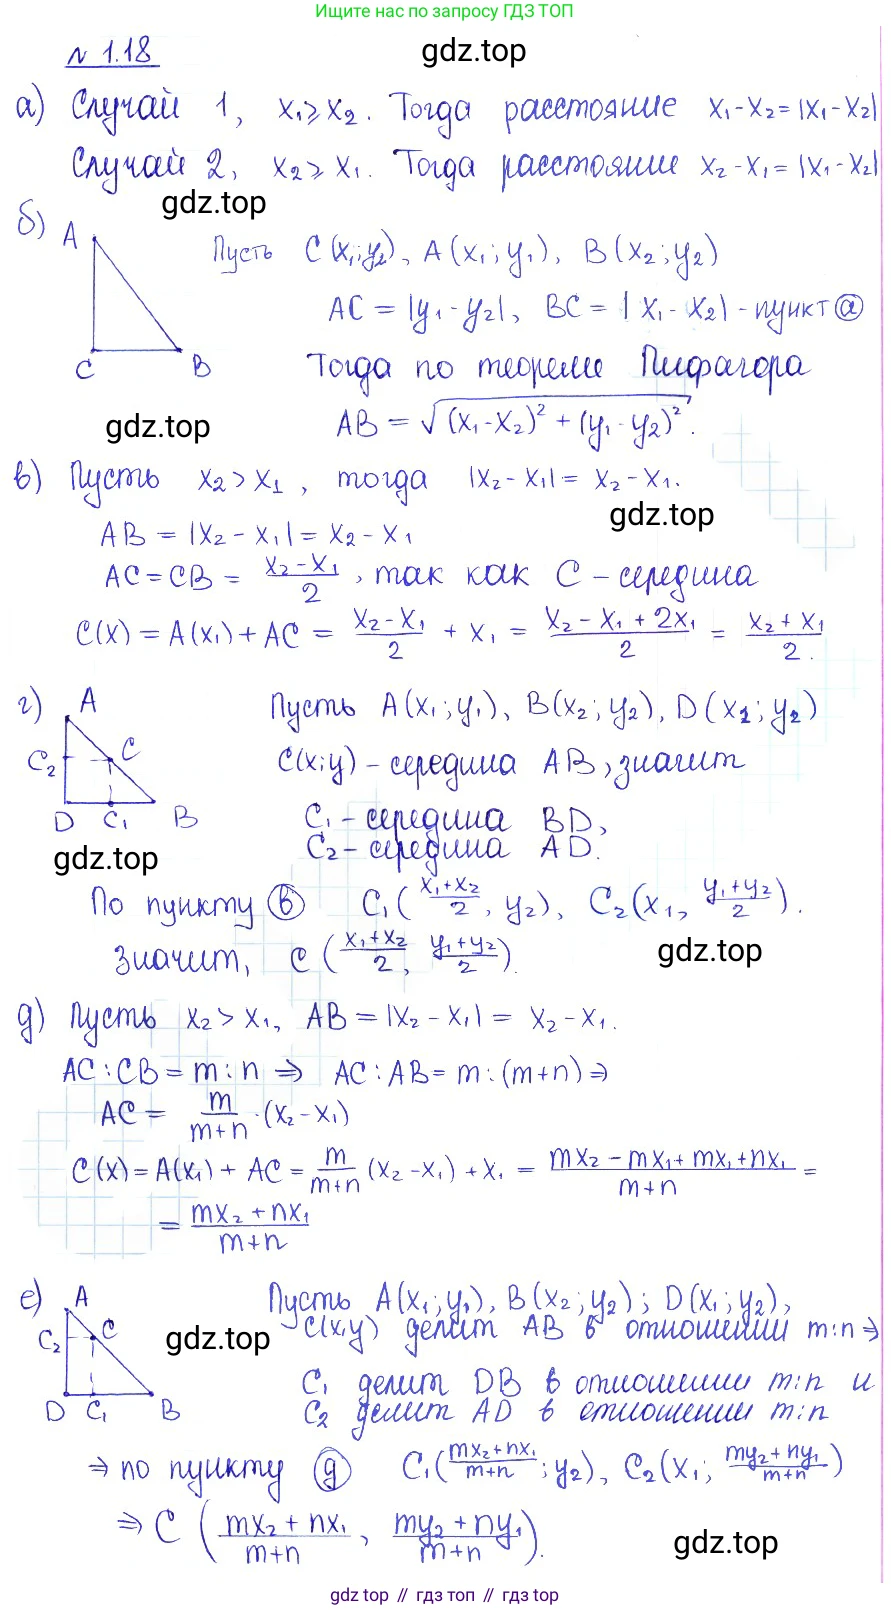 Ищите нас по запросу ГДЗ ТОП
N 1.18
gdz.top
а) Случай 1, x₁⩾x₂. Тогда расстояние x₁-x₂=|x₁-x₂|
Случай 2, x₂⩾x₁. Тогда расстояние x₂-x₁=|x₁-x₂|
gdz.top
б) A
C B
Пусть C(x₁;y₂), A(x₁;y₁), B(x₂;y₂)
AC = |y₁-y₂|, BC = |x₁-x₂| - пункт ⓐ
Тогда по теореме Пифагора
gdz.top
AB = √((x₁-x₂)² + (y₁-y₂)²).
в) Пусть x₂>x₁, тогда |x₂-x₁| = x₂-x₁.
gdz.top
AB = |x₂-x₁| = x₂-x₁
AC=CB = (x₂-x₁)/2, так как C - середина
C(x) = A(x₁) + AC = (x₂-x₁)/2 + x₁ = (x₂-x₁+2x₁)/2 = (x₂+x₁)/2.
г) A
C₂ C
D C₁ B
Пусть A(x₁;y₁), B(x₂;y₂), D(x₁;y₂)
C(x;y) - середина AB, значит
C₁ - середина BD,
C₂ - середина AD.
gdz.top
По пункту ⓑ C₁((x₁+x₂)/2, y₂), C₂(x₁, (y₁+y₂)/2).
Значит, C((x₁+x₂)/2, (y₁+y₂)/2).
gdz.top
д) Пусть x₂>x₁, AB = |x₂-x₁| = x₂-x₁.
AC:CB = m:n ⇒ AC:AB = m:(m+n) ⇒
AC = m/(m+n)·(x₂-x₁)
C(x) = A(x₁) + AC = m/(m+n) (x₂-x₁) + x₁ = (mx₂-mx₁+mx₁+nx₁)/(m+n) =
= (mx₂+nx₁)/(m+n)
е) A
C₂ C
D C₁ B
gdz.top
Пусть A(x₁;y₁), B(x₂;y₂); D(x₁;y₂),
C(x;y) делит AB в отношении m:n ⇒
C₁ делит DB в отношении m:n и
C₂ делит AD в отношении m:n
⇒ по пункту ⓖ C₁((mx₂+nx₁)/(m+n); y₂), C₂(x₁; (my₂+ny₁)/(m+n))
⇒ C((mx₂+nx₁)/(m+n), (my₂+ny₁)/(m+n)).
gdz.top
gdz top // гдз топ // гдз top